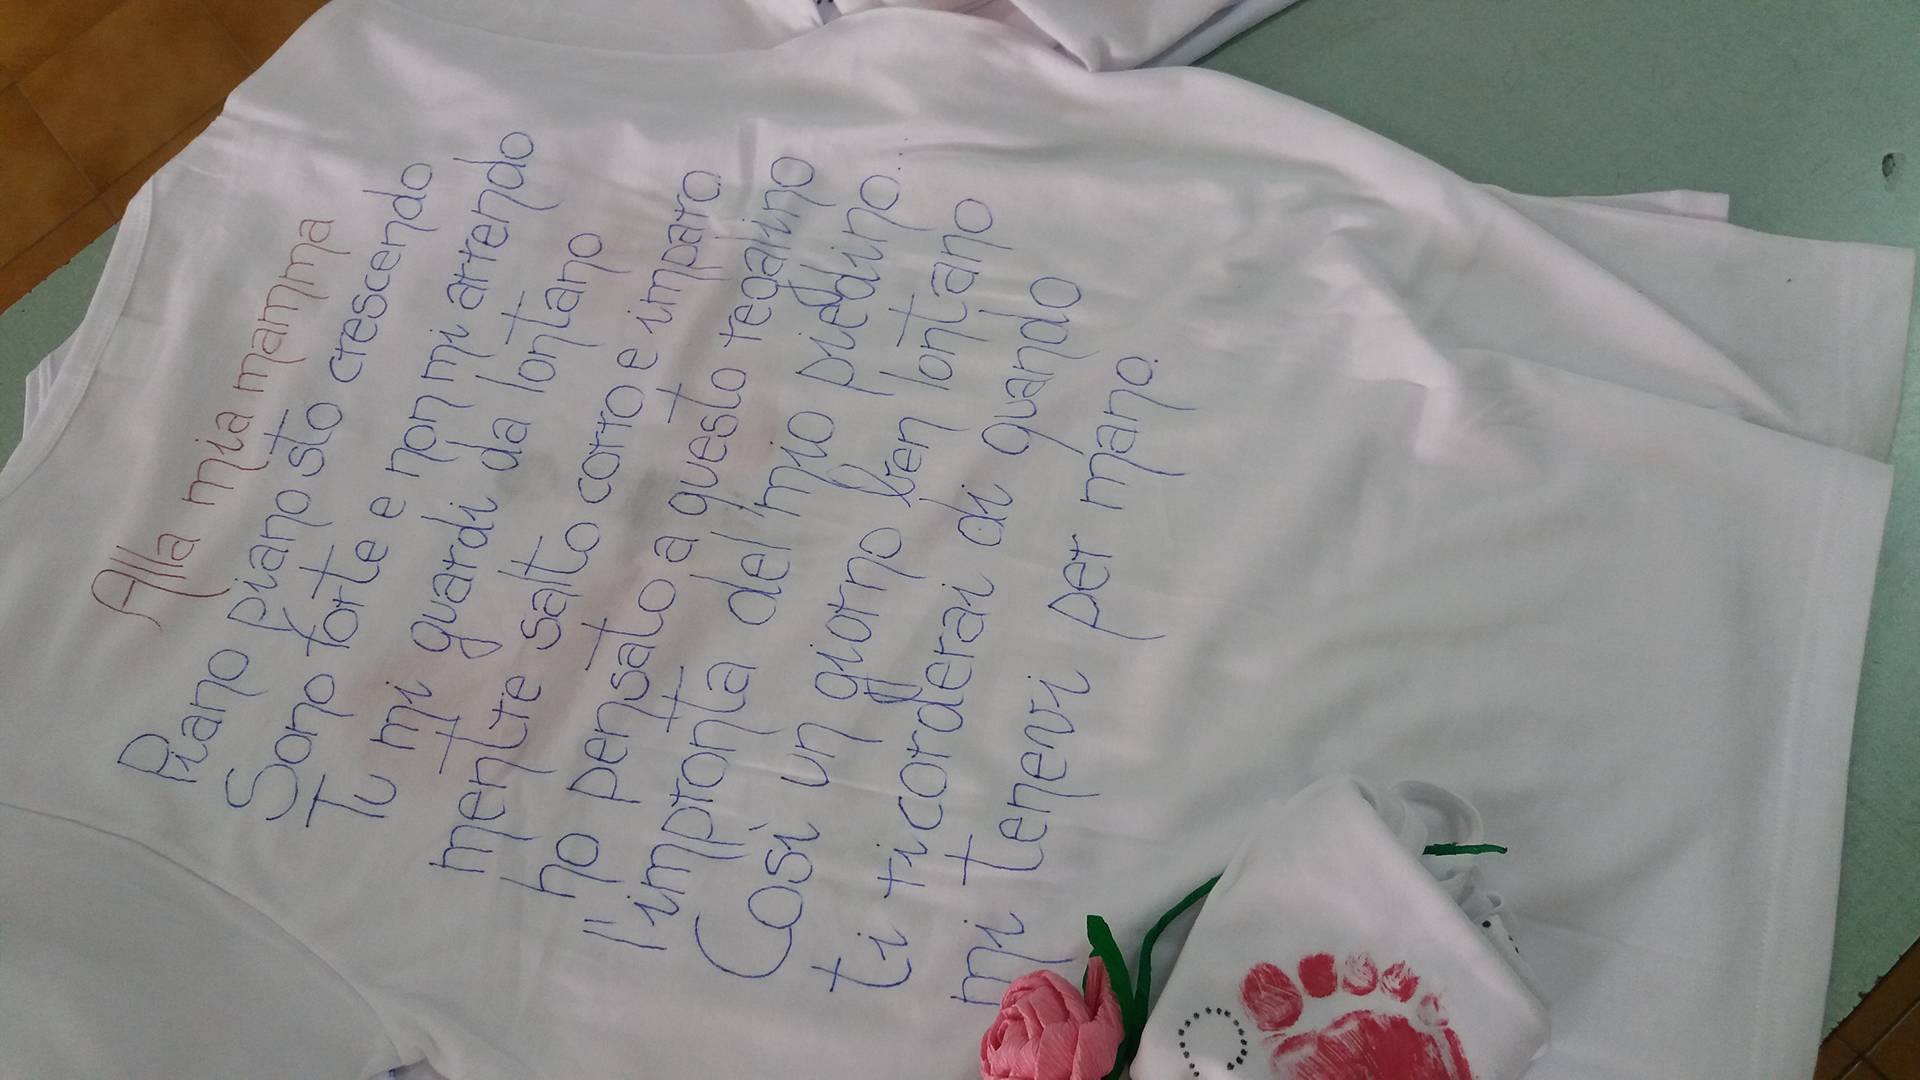 Alla mia mamma
Piano piano sto crescendo
Sono forte e non mi arrendo
Tu mi guardi da lontano
mentre salto corro e imparo
ho pensato a questo regalino
l'impronta del mio piedino...
Così un giorno ben lontano
ti ricorderai di quando
mi tenevi per mano.